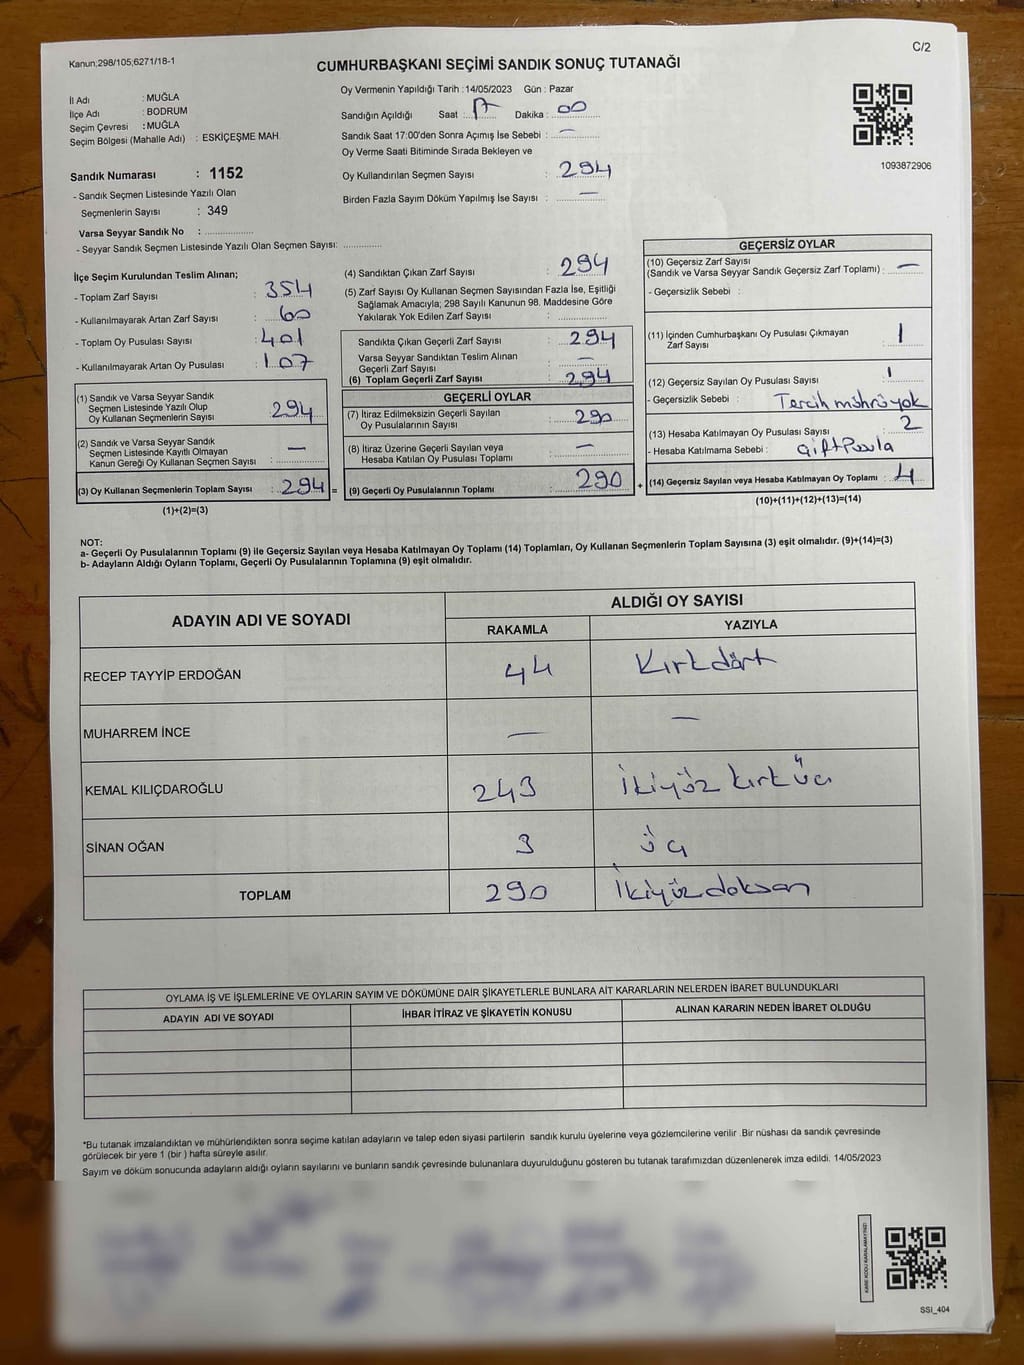 C/2
Kanun;298/105;6271/18-1
CUMHURBAŞKANI SEÇİMİ SANDIK SONUÇ TUTANAĞI
İl Adı : MUĞLA
İlçe Adı : BODRUM
Seçim Çevresi : MUĞLA
Seçim Bölgesi (Mahalle Adı) : ESKİÇEŞME MAH.
Sandık Numarası : 1152
- Sandık Seçmen Listesinde Yazılı Olan
Seçmenlerin Sayısı : 349
Varsa Seyyar Sandık No : ....................
- Seyyar Sandık Seçmen Listesinde Yazılı Olan Seçmen Sayısı: ...............
Oy Vermenin Yapıldığı Tarih : 14/05/2023 Gün : Pazar
Sandığın Açıldığı Saat : 17 Dakika : 00
Sandık Saat 17:00'den Sonra Açımış İse Sebebi : —
Oy Verme Saati Bitiminde Sırada Bekleyen ve
Oy Kullandırılan Seçmen Sayısı : 294
Birden Fazla Sayım Döküm Yapılmış İse Sayısı : —
1093872906
İlçe Seçim Kurulundan Teslim Alınan;
- Toplam Zarf Sayısı : 354
- Kullanılmayarak Artan Zarf Sayısı : 60
- Toplam Oy Pusulası Sayısı : 401
- Kullanılmayarak Artan Oy Pusulası : 107
(1) Sandık ve Varsa Seyyar Sandık
Seçmen Listesinde Yazılı Olup
Oy Kullanan Seçmenlerin Sayısı : 294
(2) Sandık ve Varsa Seyyar Sandık
Seçmen Listesinde Kayıtlı Olmayan
Kanun Gereği Oy Kullanan Seçmen Sayısı : —
(3) Oy Kullanan Seçmenlerin Toplam Sayısı : 294 =
(1)+(2)=(3)
(4) Sandıktan Çıkan Zarf Sayısı : 294
(5) Zarf Sayısı Oy Kullanan Seçmen Sayısından Fazla İse, Eşitliği
Sağlamak Amacıyla; 298 Sayılı Kanunun 98. Maddesine Göre
Yakılarak Yok Edilen Zarf Sayısı : ...............
Sandıkta Çıkan Geçerli Zarf Sayısı : 294
Varsa Seyyar Sandıktan Teslim Alınan
Geçerli Zarf Sayısı : —
(6) Toplam Geçerli Zarf Sayısı : 294
GEÇERLİ OYLAR
(7) İtiraz Edilmeksizin Geçerli Sayılan
Oy Pusulalarının Sayısı : 290
(8) İtiraz Üzerine Geçerli Sayılan veya
Hesaba Katılan Oy Pusulası Toplamı : —
(9) Geçerli Oy Pusulalarının Toplamı : 290 +
GEÇERSİZ OYLAR
(10) Geçersiz Zarf Sayısı
(Sandık ve Varsa Seyyar Sandık Geçersiz Zarf Toplamı) : —
- Geçersizlik Sebebi :
(11) İçinden Cumhurbaşkanı Oy Pusulası Çıkmayan
Zarf Sayısı : 1
(12) Geçersiz Sayılan Oy Pusulası Sayısı : 1
- Geçersizlik Sebebi : Tercih mührü yok
(13) Hesaba Katılmayan Oy Pusulası Sayısı : 2
- Hesaba Katılmama Sebebi : Çift Pusula
(14) Geçersiz Sayılan veya Hesaba Katılmayan Oy Toplamı : 4
(10)+(11)+(12)+(13)=(14)
NOT:
a- Geçerli Oy Pusulalarının Toplamı (9) ile Geçersiz Sayılan veya Hesaba Katılmayan Oy Toplamı (14) Toplamları, Oy Kullanan Seçmenlerin Toplam Sayısına (3) eşit olmalıdır. (9)+(14)=(3)
b- Adayların Aldığı Oyların Toplamı, Geçerli Oy Pusulalarının Toplamına (9) eşit olmalıdır.
ADAYIN ADI VE SOYADI
ALDIĞI OY SAYISI
RAKAMLA YAZIYLA
RECEP TAYYİP ERDOĞAN 44 Kırkdört
MUHARREM İNCE — —
KEMAL KILIÇDAROĞLU 243 İkiyüz kırk üç
SİNAN OĞAN 3 üç
TOPLAM 290 İkiyüz doksan
OYLAMA İŞ VE İŞLEMLERİNE VE OYLARIN SAYIM VE DÖKÜMÜNE DAİR ŞİKAYETLERLE BUNLARA AİT KARARLARIN NELERDEN İBARET BULUNDUKLARI
ADAYIN ADI VE SOYADI İHBAR İTİRAZ VE ŞİKAYETİN KONUSU ALINAN KARARIN NEDEN İBARET OLDUĞU
*Bu tutanak imzalandıktan ve mühürlendikten sonra seçime katılan adayların ve talep eden siyasi partilerin sandık kurulu üyelerine veya gözlemcilerine verilir .Bir nüshası da sandık çevresinde
görülecek bir yere 1 (bir ) hafta süreyle asılır.
Sayım ve döküm sonucunda adayların aldığı oyların sayılarını ve bunların sandık çevresinde bulunanlara duyurulduğunu gösteren bu tutanak tarafımızdan düzenlenerek imza edildi. 14/05/2023
KARE KODU KARALAMAYINIZ!
SSI_404